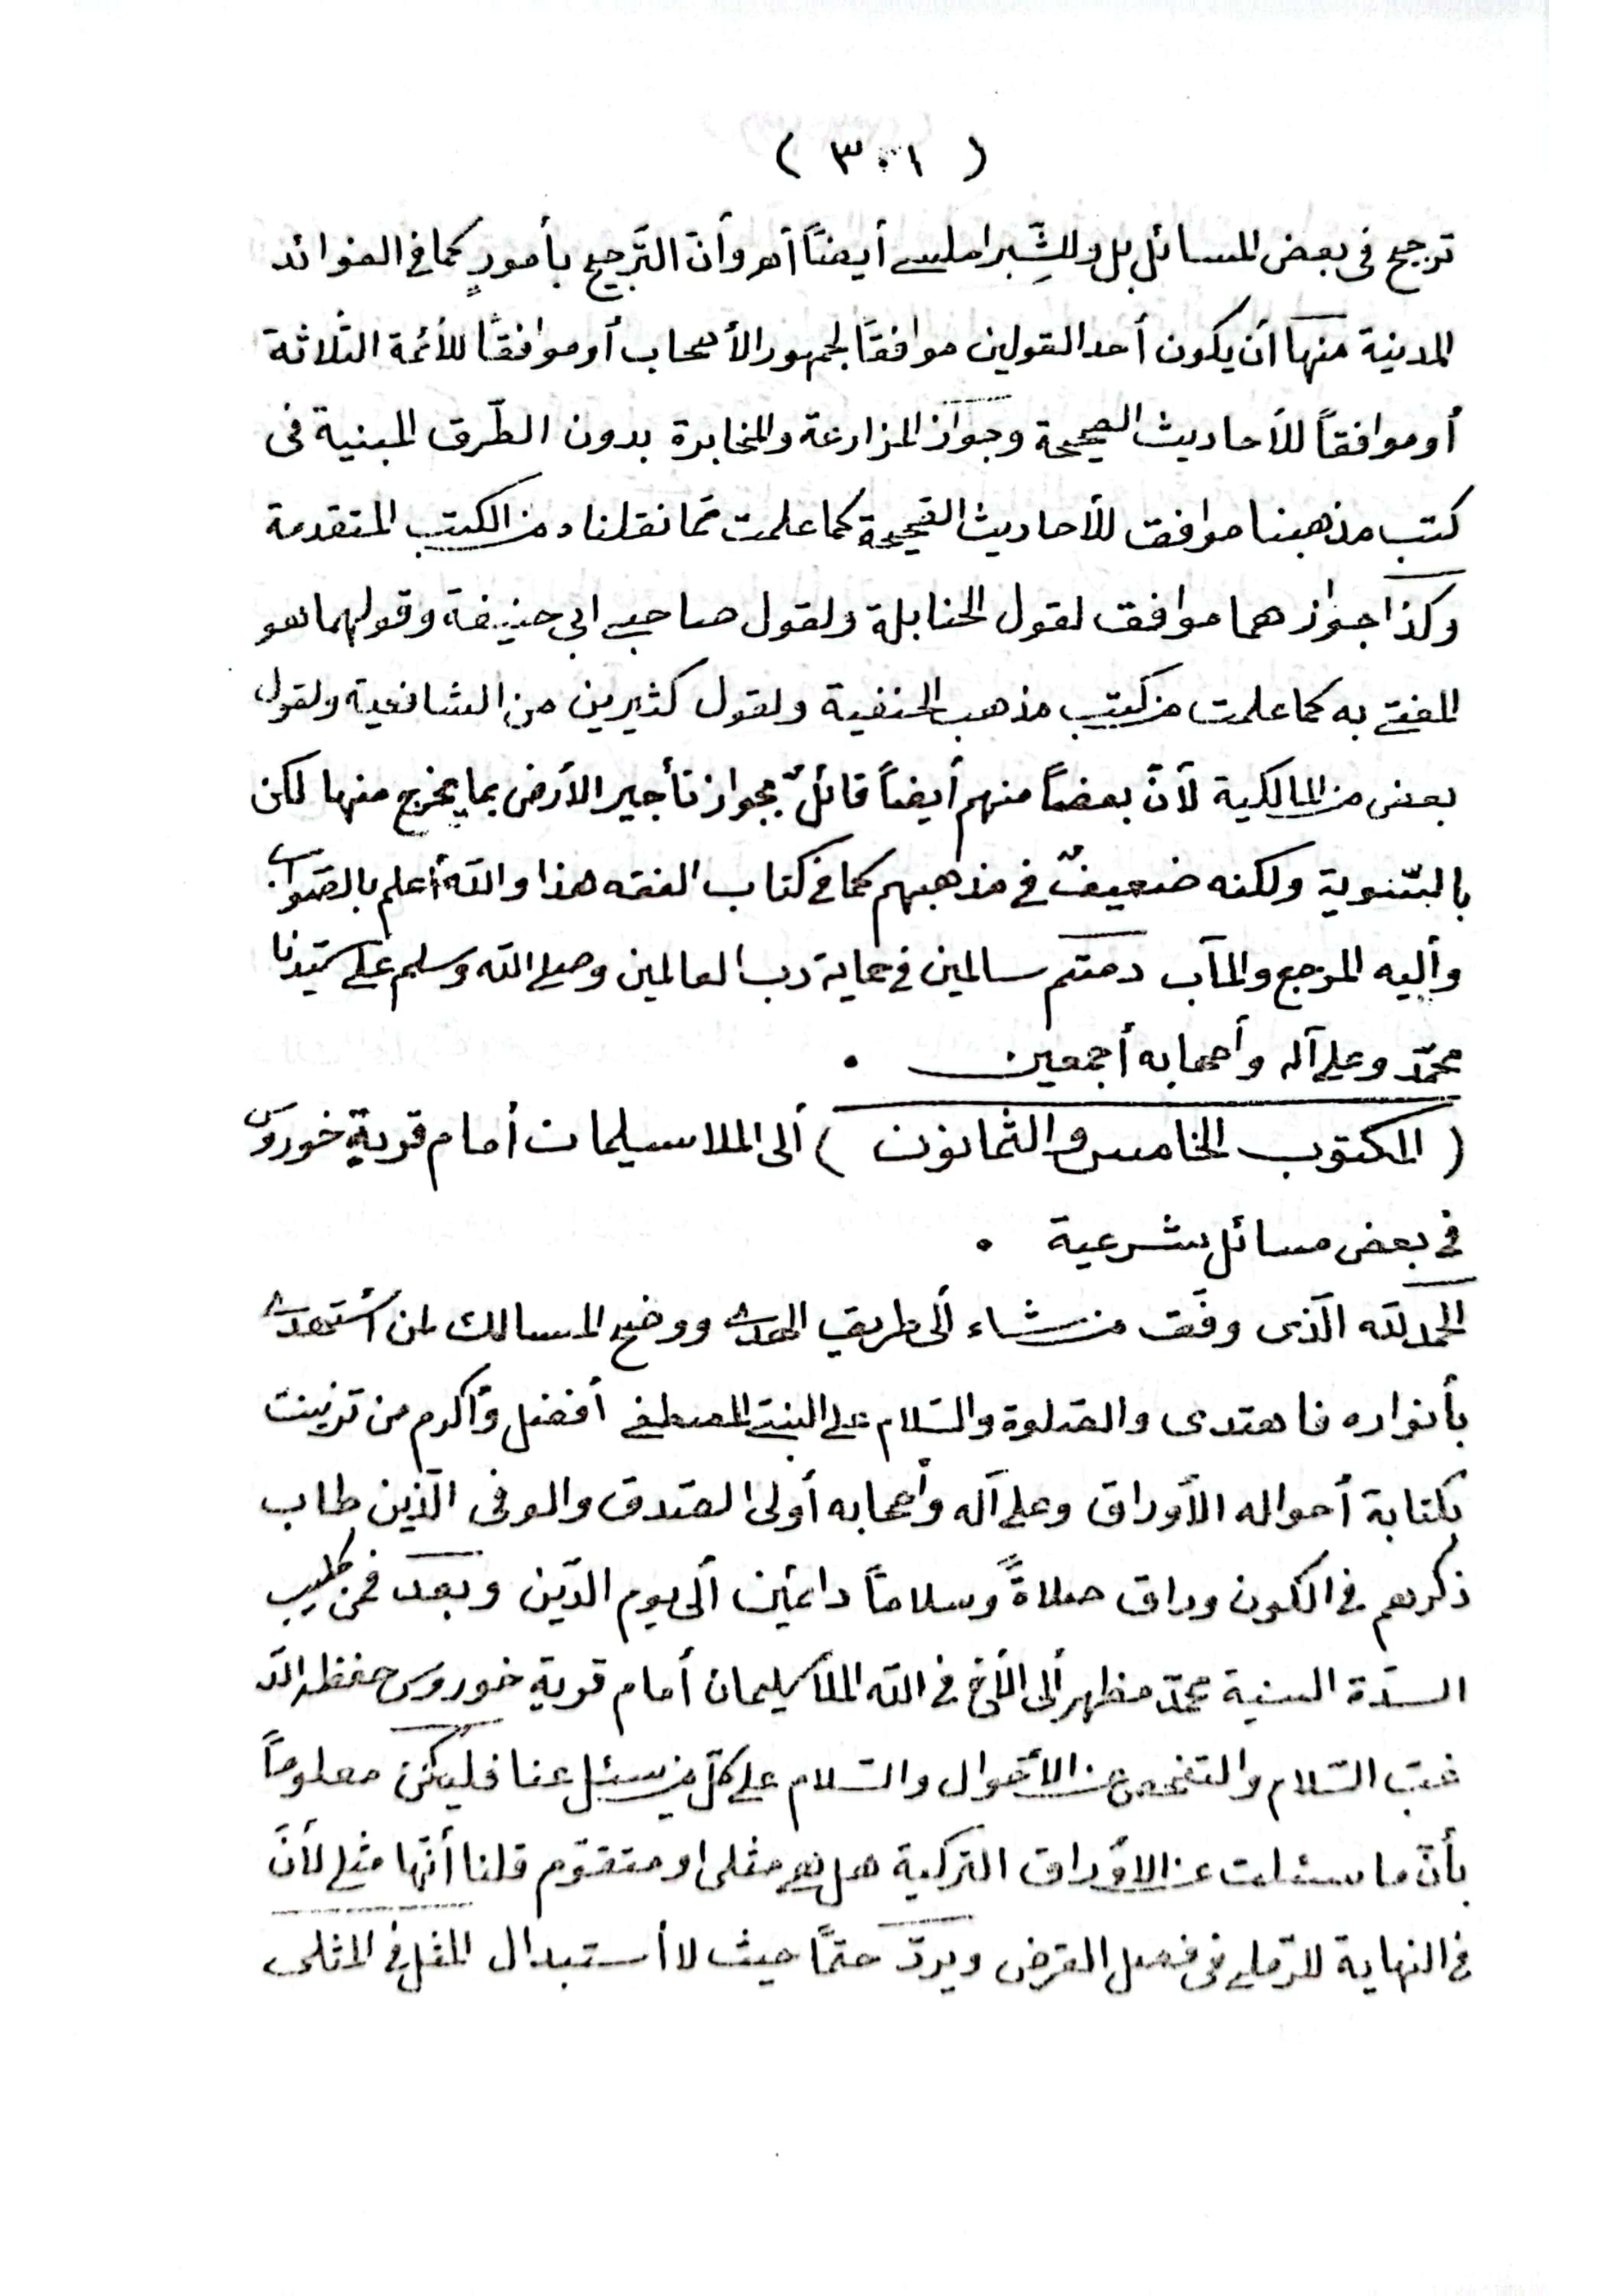 ( ٣٠١ )
ترجيح فى بعض المسائل بل وللشِّبراملسي أيضًا أهـ وأن التَّرجيح بأمورٍ كما في الفوائد
المدينية منها أن يكون أحد القولين موافقًا لجمهور الأصحاب أو موافقًا للأئمة الثلاثة
أو موافقاً للأحاديث الصحيحة وجواز المزارعة والمخابرة بدون الطّرق المبنية فى
كتب مذهبنا موافق للأحاديث الصّحيحة كما علمت ممّا نقلناه من الكتب المتقدمة
وكذا جواز هما موافق لقول الحنابلة ولقول صاحبي ابي حنيفة وقولهما هو
المفتى به كما علمت من كتب مذهب الحنفية ولقول كثيرين من الشافعية ولقول
بعض من المالكية لأنّ بعضاً منهم أيضاً قائلٌ بجواز تأجير الأرض بما يخرج منها لكن
بالتسوية ولكنه ضعيفٌ في مذهبهم كما في كتاب الفقه هذا والله أعلم بالصّواب
وأليه المرجع والمآب دمتم سالمين في حماية رب العالمين وصلى الله وسلم على سيّدنا
محمّد وعلى آله وأصحابه أجمعين .
( المكتوب الخامس والثمانون ) ألى الملا سيلمان أمام قرية خوروس
في بعض مسائل شرعية .
الحمد لله الّذى وفّق من شاء ألى طريق الهدى ووضح المسالك لمن أستهدى
بأنواره فاهتدى والصّلوة والسّلام على النبيّ المصطفى أفضل وأكرم من تزينت
بكتابة أحواله الأوراق وعلى آله وأصحابه أولى الصّدق والوفى الّذين طاب
ذكرهم في الكون وراق صلاةً وسلامًا دائمين ألى يوم الدّين وبعد فمن كليب
السدّة السنية محمّد مظهر ألى الأخ في الله الملا سليمان أمام قرية خوروس حفظه الله
غبّ السّلام والتفحص عن الأحوال والسّلام على كلّ من سئل عنا فليكن معلوماً
بأنّ ما سئلت عن الاوراق التركية هل هو مثلى او متقوّم قلنا أنّها مثلي لأنّ
في النهاية للرّملي في فصل القرض ويردّ حتمًا حيث لا أستبدال المثل في المثلى